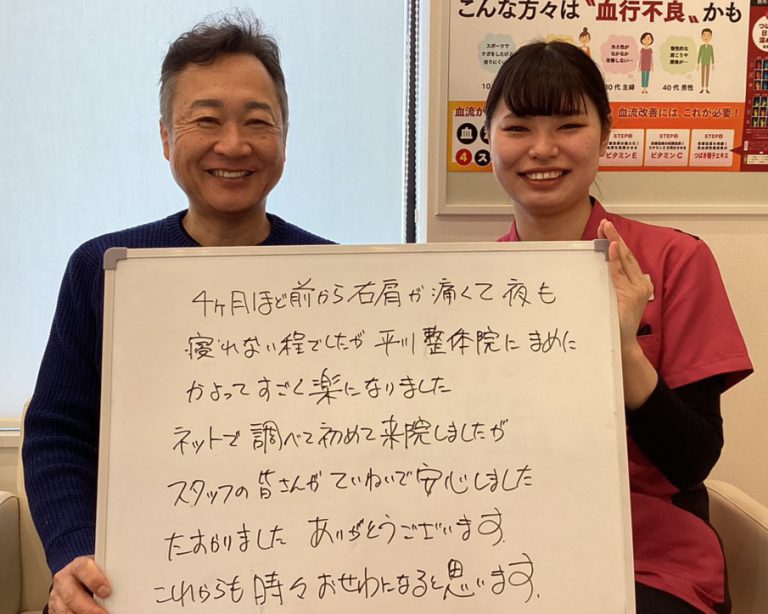 こんな方々は〝血行不良〟かも
スポーツで
冷え性が
なかなか
改善しない…
慢性的な
肩こりや
腰痛が…
30代 主婦
40代 男性
血流改善には、これが必要!
STEP
STEP
STEP
ビタミンE
ビタミンC
つばき種子エキス
4ヶ月ほど前から右肩が痛くて夜も
寝れない程でしたが平川整体院にまめに
かよってすごく楽になりました
ネットで調べて初めて来院しましたが
スタッフの皆さんがていねいで安心しました
たすかりました ありがとうございます.
これからも時々おせわになると思います.